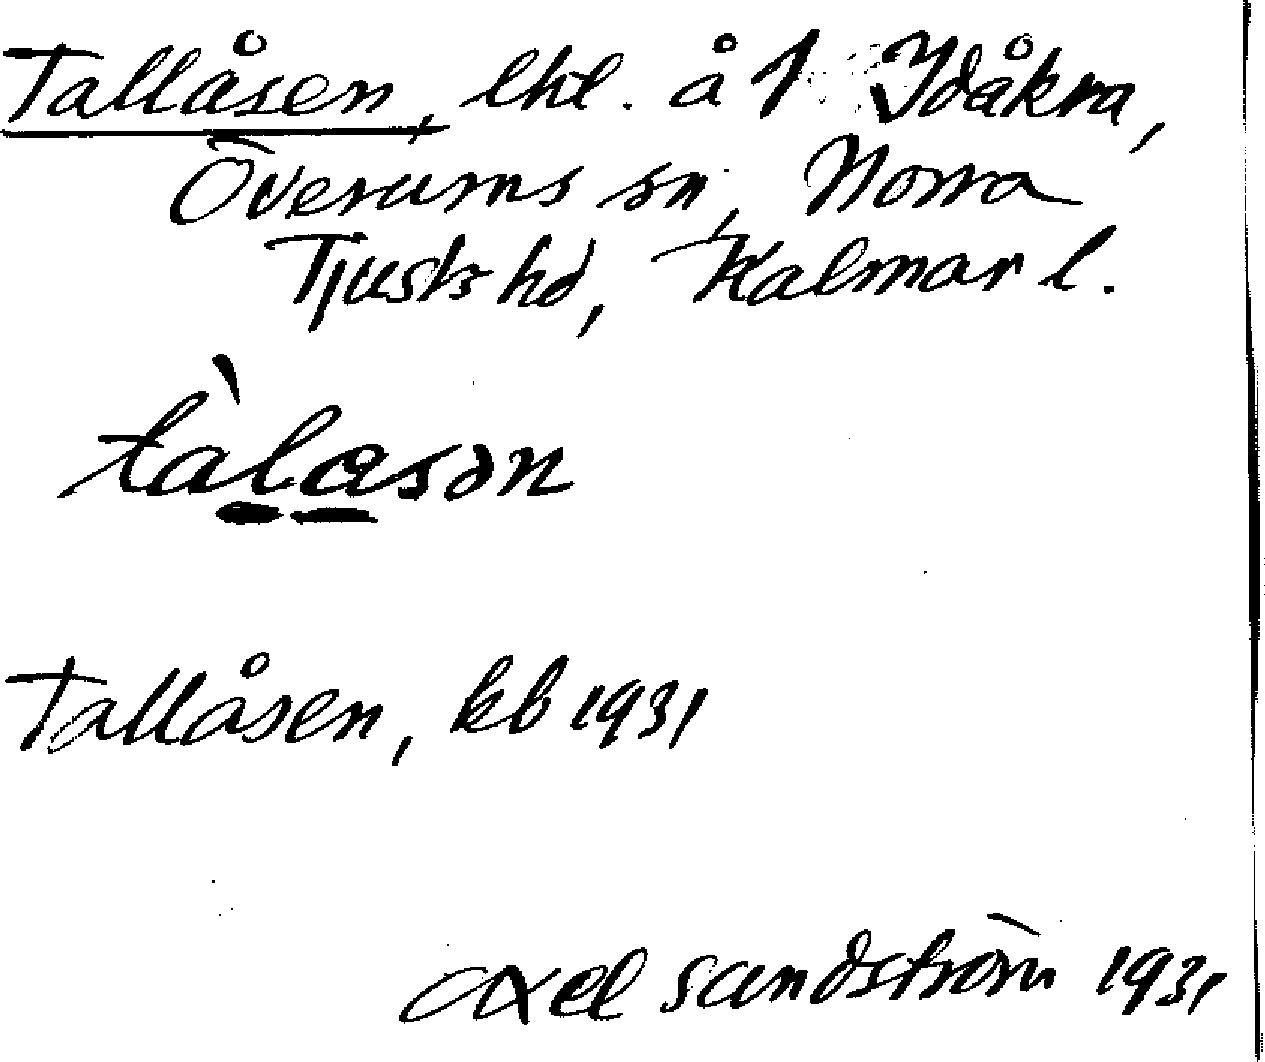 Tallåsen, lht. å 1 Ydåkra,
Överums sn, Norra
Tjusts hd, Kalmar l.
tàlasən
Tallåsen, kb 1931
Axel Sandström 1931